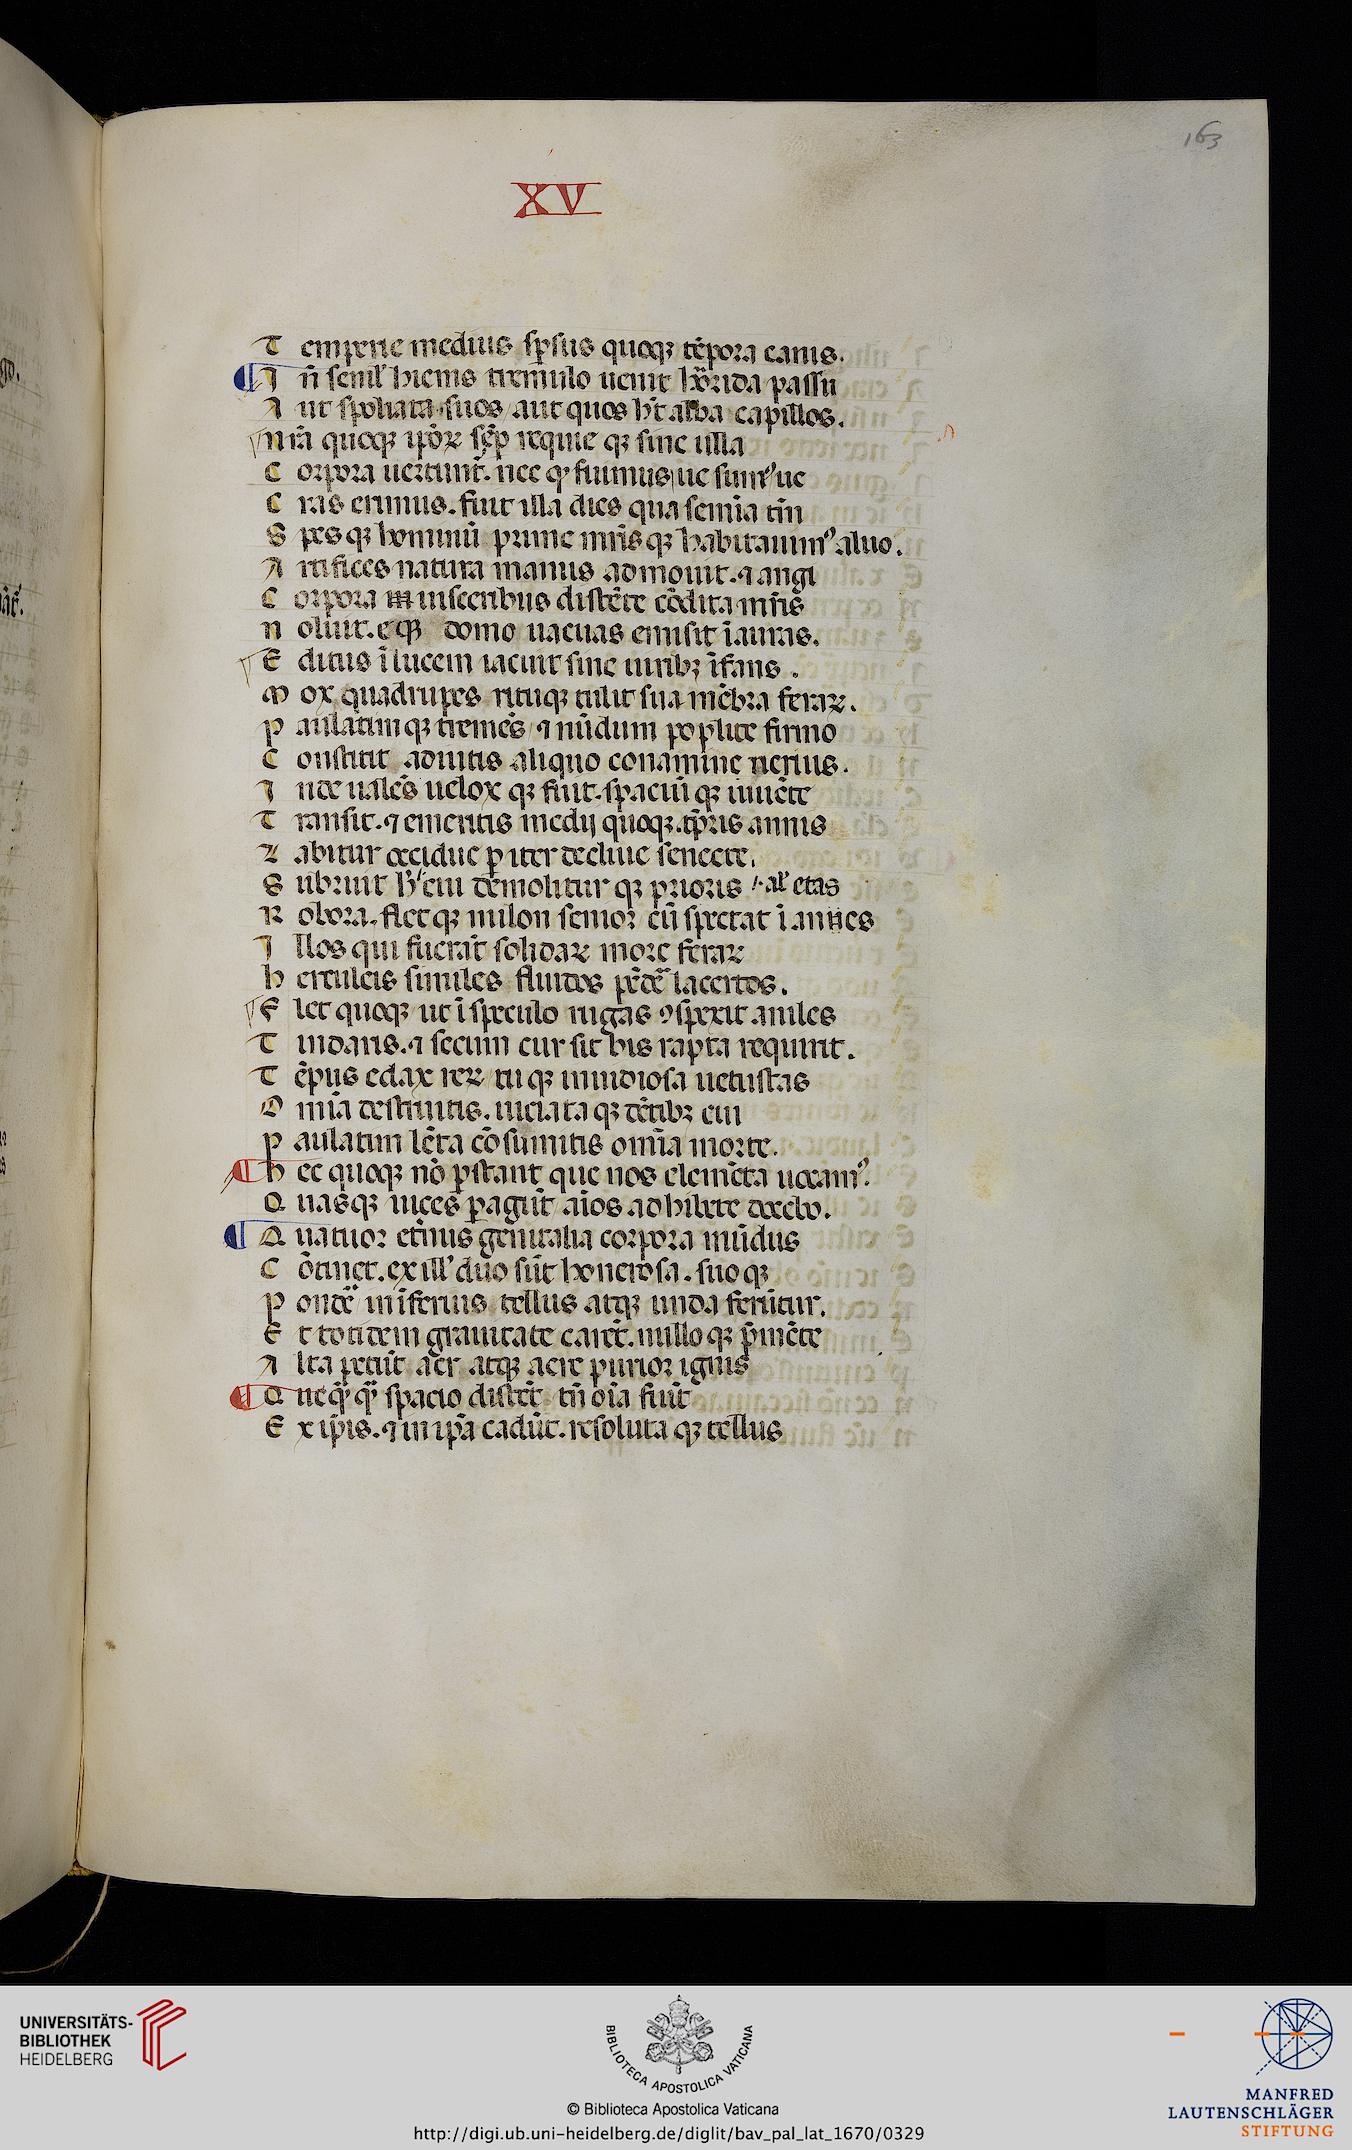 163
XV
T emperie medius spsus quoqꝫ tēpora canis.
¶ I ñ senil' hiems tremulo uenit horrida passu
A ut spoliata suos aut quos h̄t alba capillos.
N rā quoqꝫ ipōꝝ sēp requie qꝫ sine ulla
C orpora uertunt̄. nec qꝫ fuimus ue sumꝰ ue
C ras erimus. fuit illa dies qua semīa tm̄
S pes qꝫ hominū prime mr̄is qꝫ habitauimꝰ aluo.
A rtifices natura manus admouit. ⁊ angi
C orpora uisceribus distēte cōdita mr̄is
N oluit. e qꝫ domo uacuas emisit ī auras.
E ditus ī lucem iacuit sine uiribꝫ īfans.
M ox quadrupes rituqꝫ tulit sua mēbra feraꝝ.
P aulatim qꝫ tremēs ⁊ nūdum poplite firmo
C onstitit adiutis aliquo conamine neruis.
I nde ualēs uelox qꝫ fuit. spaciū qꝫ iuuēte
T ransit. ⁊ emeritis medij quoqꝫ. tp̄ris annis
L abitur occidue ꝑ iter decliue senecte.
S ubruit h' eui demolitur qꝫ prioris /. al' etas
R obora. flet qꝫ milon senior cū spectat ī annes
I llos qui fuerāt solidaꝝ more feraꝝ
H erculeis similes fluidos pēde lacertos.
F let quoqꝫ ut ī speculo rugas ꝯspexit aniles
T indaris. ⁊ secum cur sit bis rapta requirit.
T ēpus edax reꝝ tu qꝫ inuidiosa uetustas
O mīa destruitis. uiciata qꝫ dētibꝫ eui
P aulatim lēta cōsumitis omīa morte.
¶ H ec quoqꝫ nō ꝑstant que nos elemēta uocamꝰ.
Q uasqꝫ uices ꝑagūt aīos adhibete docebo.
¶ Q uatuor etnus genitalia corpora mūdus
C ōtinet. ex ill' duo sūt honerosa. suo qꝫ
P ondē in īferius tellus atqꝫ unda ferūtur.
E t totidem grauitate carēt. nullo qꝫ p̄mēte
A lta petūt aer atqꝫ aere purior ignis
¶ Q ue qꝫ qꝫ spacio distēt tn̄ oīa fiūt
E x ip̄is. ⁊ in ip̄a cadūt. resoluta qꝫ tellus
UNIVERSITÄTS-
BIBLIOTHEK
HEIDELBERG
BIBLIOTECA APOSTOLICA VATICANA
© Biblioteca Apostolica Vaticana
http://digi.ub.uni-heidelberg.de/diglit/bav_pal_lat_1670/0329
MANFRED
LAUTENSCHLÄGER
STIFTUNG